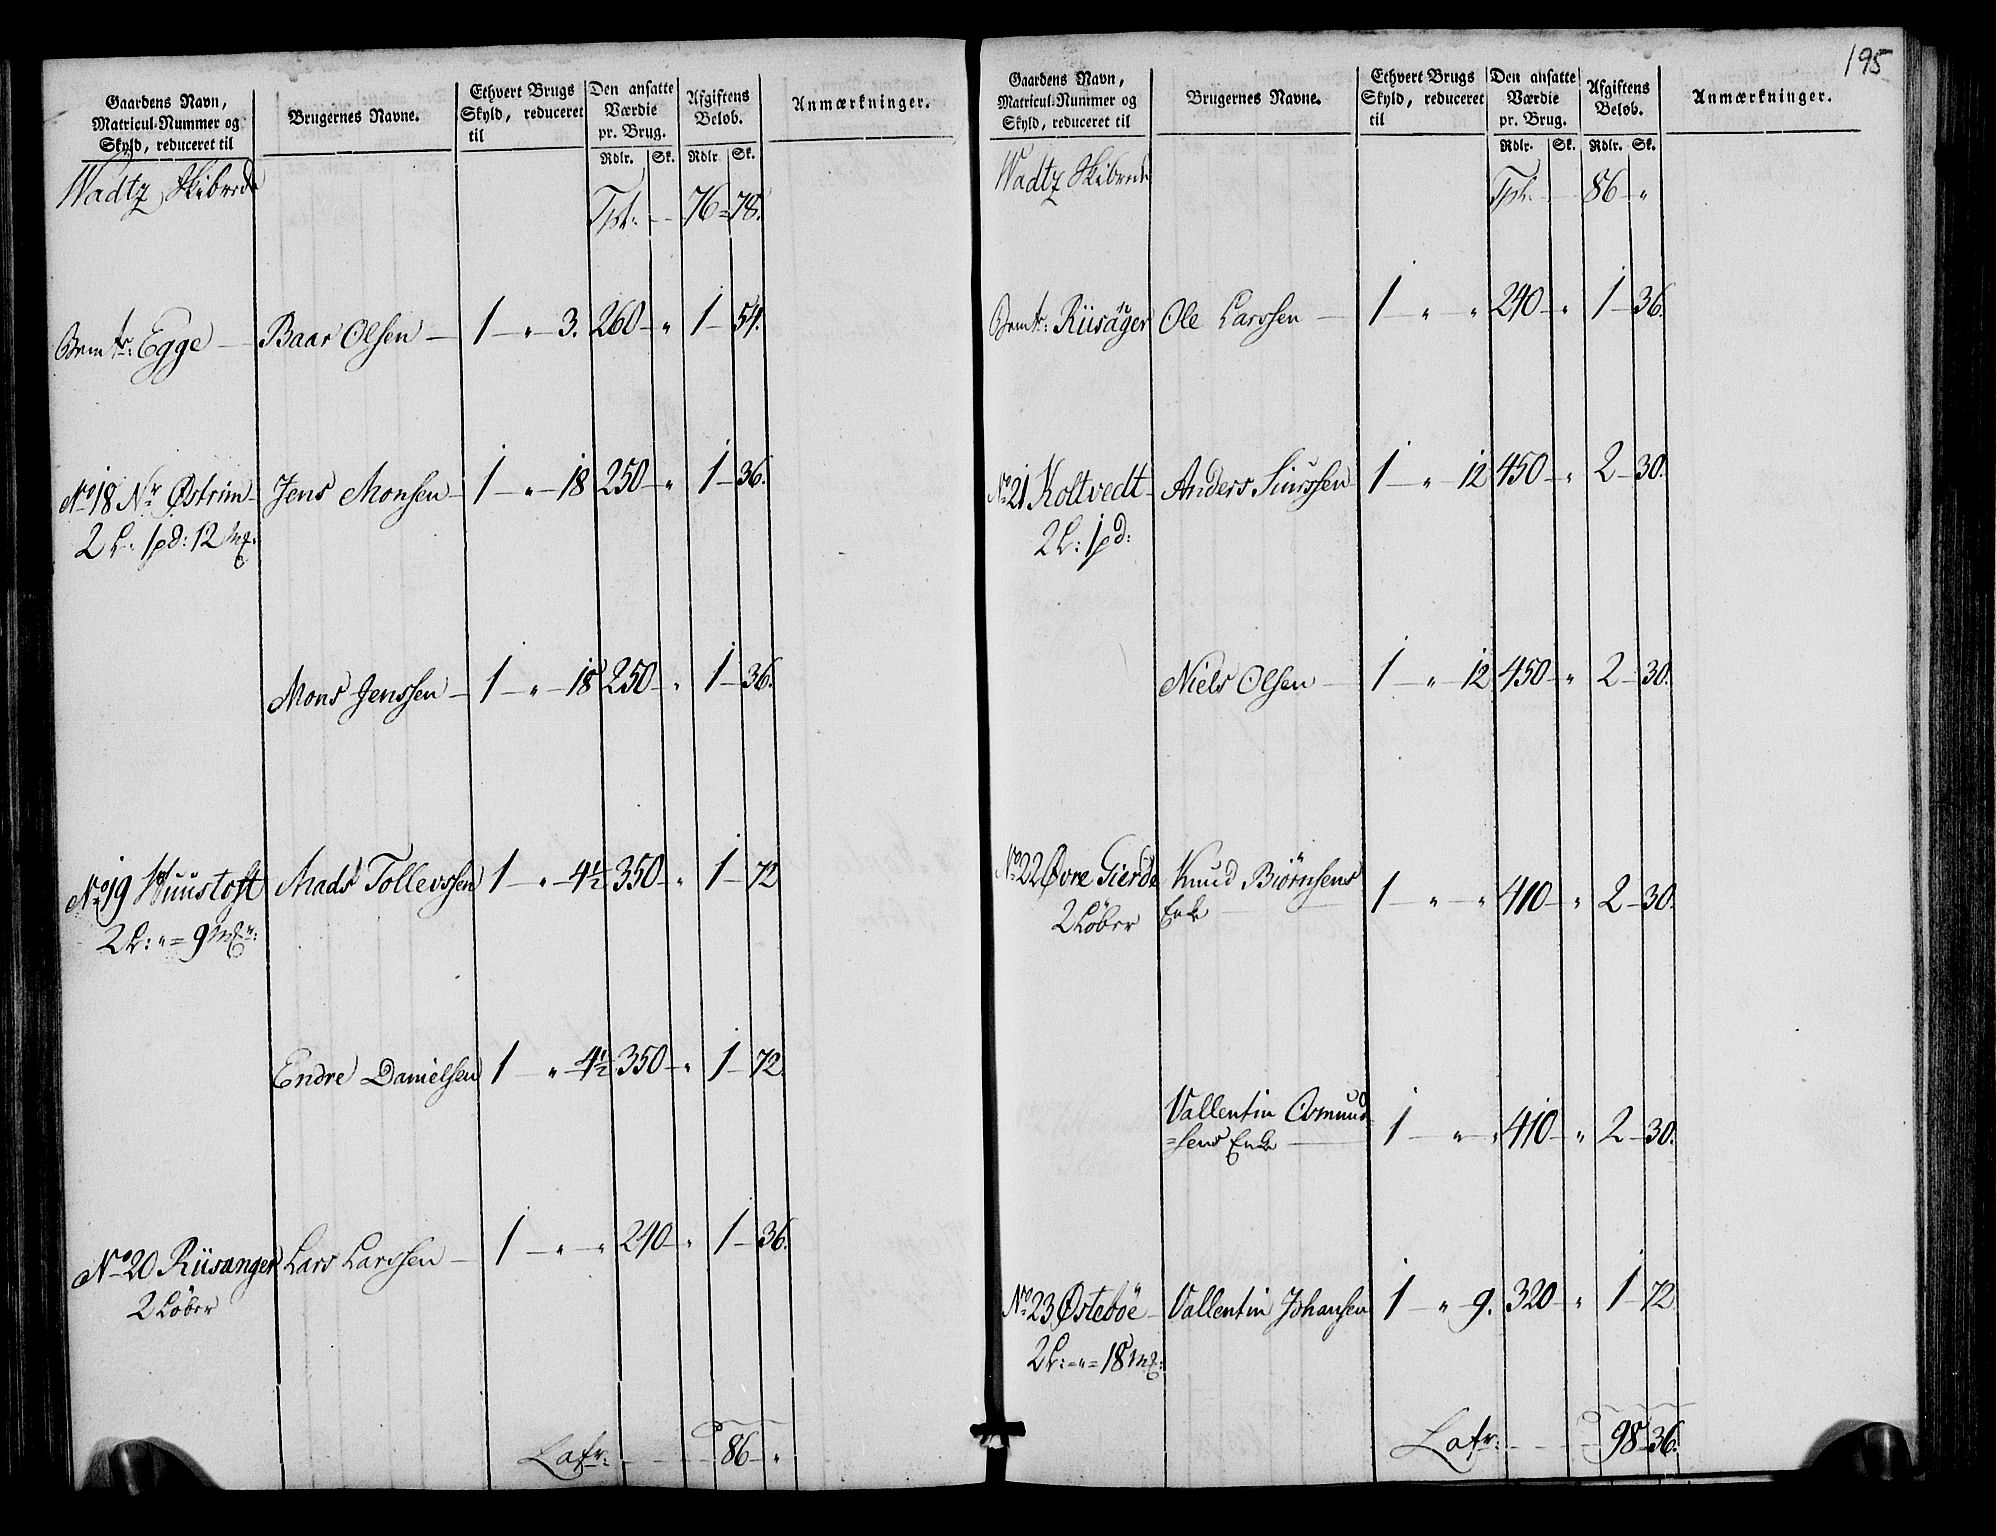 Gaardens Navn, Matricul-Nummer og Skyld, reduceret til
Brugernes Navne.
Ethvert Brugs Skyld, reduceret til
Den ansatte Værdie pr. Brug.
Afgiftens Beløb.
Anmærkninger.
Rdlr. Sk. Rdlr Sk.
Wadtz Skibrede
Tpt: 76 = 78.
Egge Baar Olsen 1 „ 3. 260 „ 1 54.
No 18 Nr Østrim Jens Monsen 1 „ 18 250 „ 1 36.
2 L: 1 pd: 12 mk:
Mons Jenssen 1 „ 18 250 „ 1 36.
No 19 Huustoft Mads Tollevssen 1 „ 4½ 350 „ 1 72
2 L: „ = 9 mk:
Endre Danielsen 1 „ 4½ 350 „ 1 72.
No 20 Riisanger Lars Larssen 1 „ „ 240 „ 1 36.
2 Løber
Lafr: 86 „
195
Gaardens Navn, Matricul-Nummer og Skyld, reduceret til
Brugernes Navne.
Ethvert Brugs Skyld, reduceret til
Den ansatte Værdie pr. Brug.
Afgiftens Beløb.
Anmærkninger.
Rdlr. Sk. Rdlr. Sk.
Wadtz Skibrede
Tpt: 86 „
Riisanger Ole Larssen 1 „ „ 240 „ 1 36.
No 21 Koltvedt Anders Siurssen 1 „ 12 450 „ 2 30.
2 L: 1 pd:
Niels Olsen 1 „ 12 450 „ 2 30.
No 22 Øvre Gierde Knud Biørnsens
2 Løber Enke 1 „ „ 410 „ 2 30.
Vallentin Osmund
=sens Enke 1 „ „ 410 „ 2 30.
No 23 Østebøe Vallentin Johansen 1 „ 9. 320 „ 1 72
2 L: = „ = 18 mk:
Lafr: 98 36.